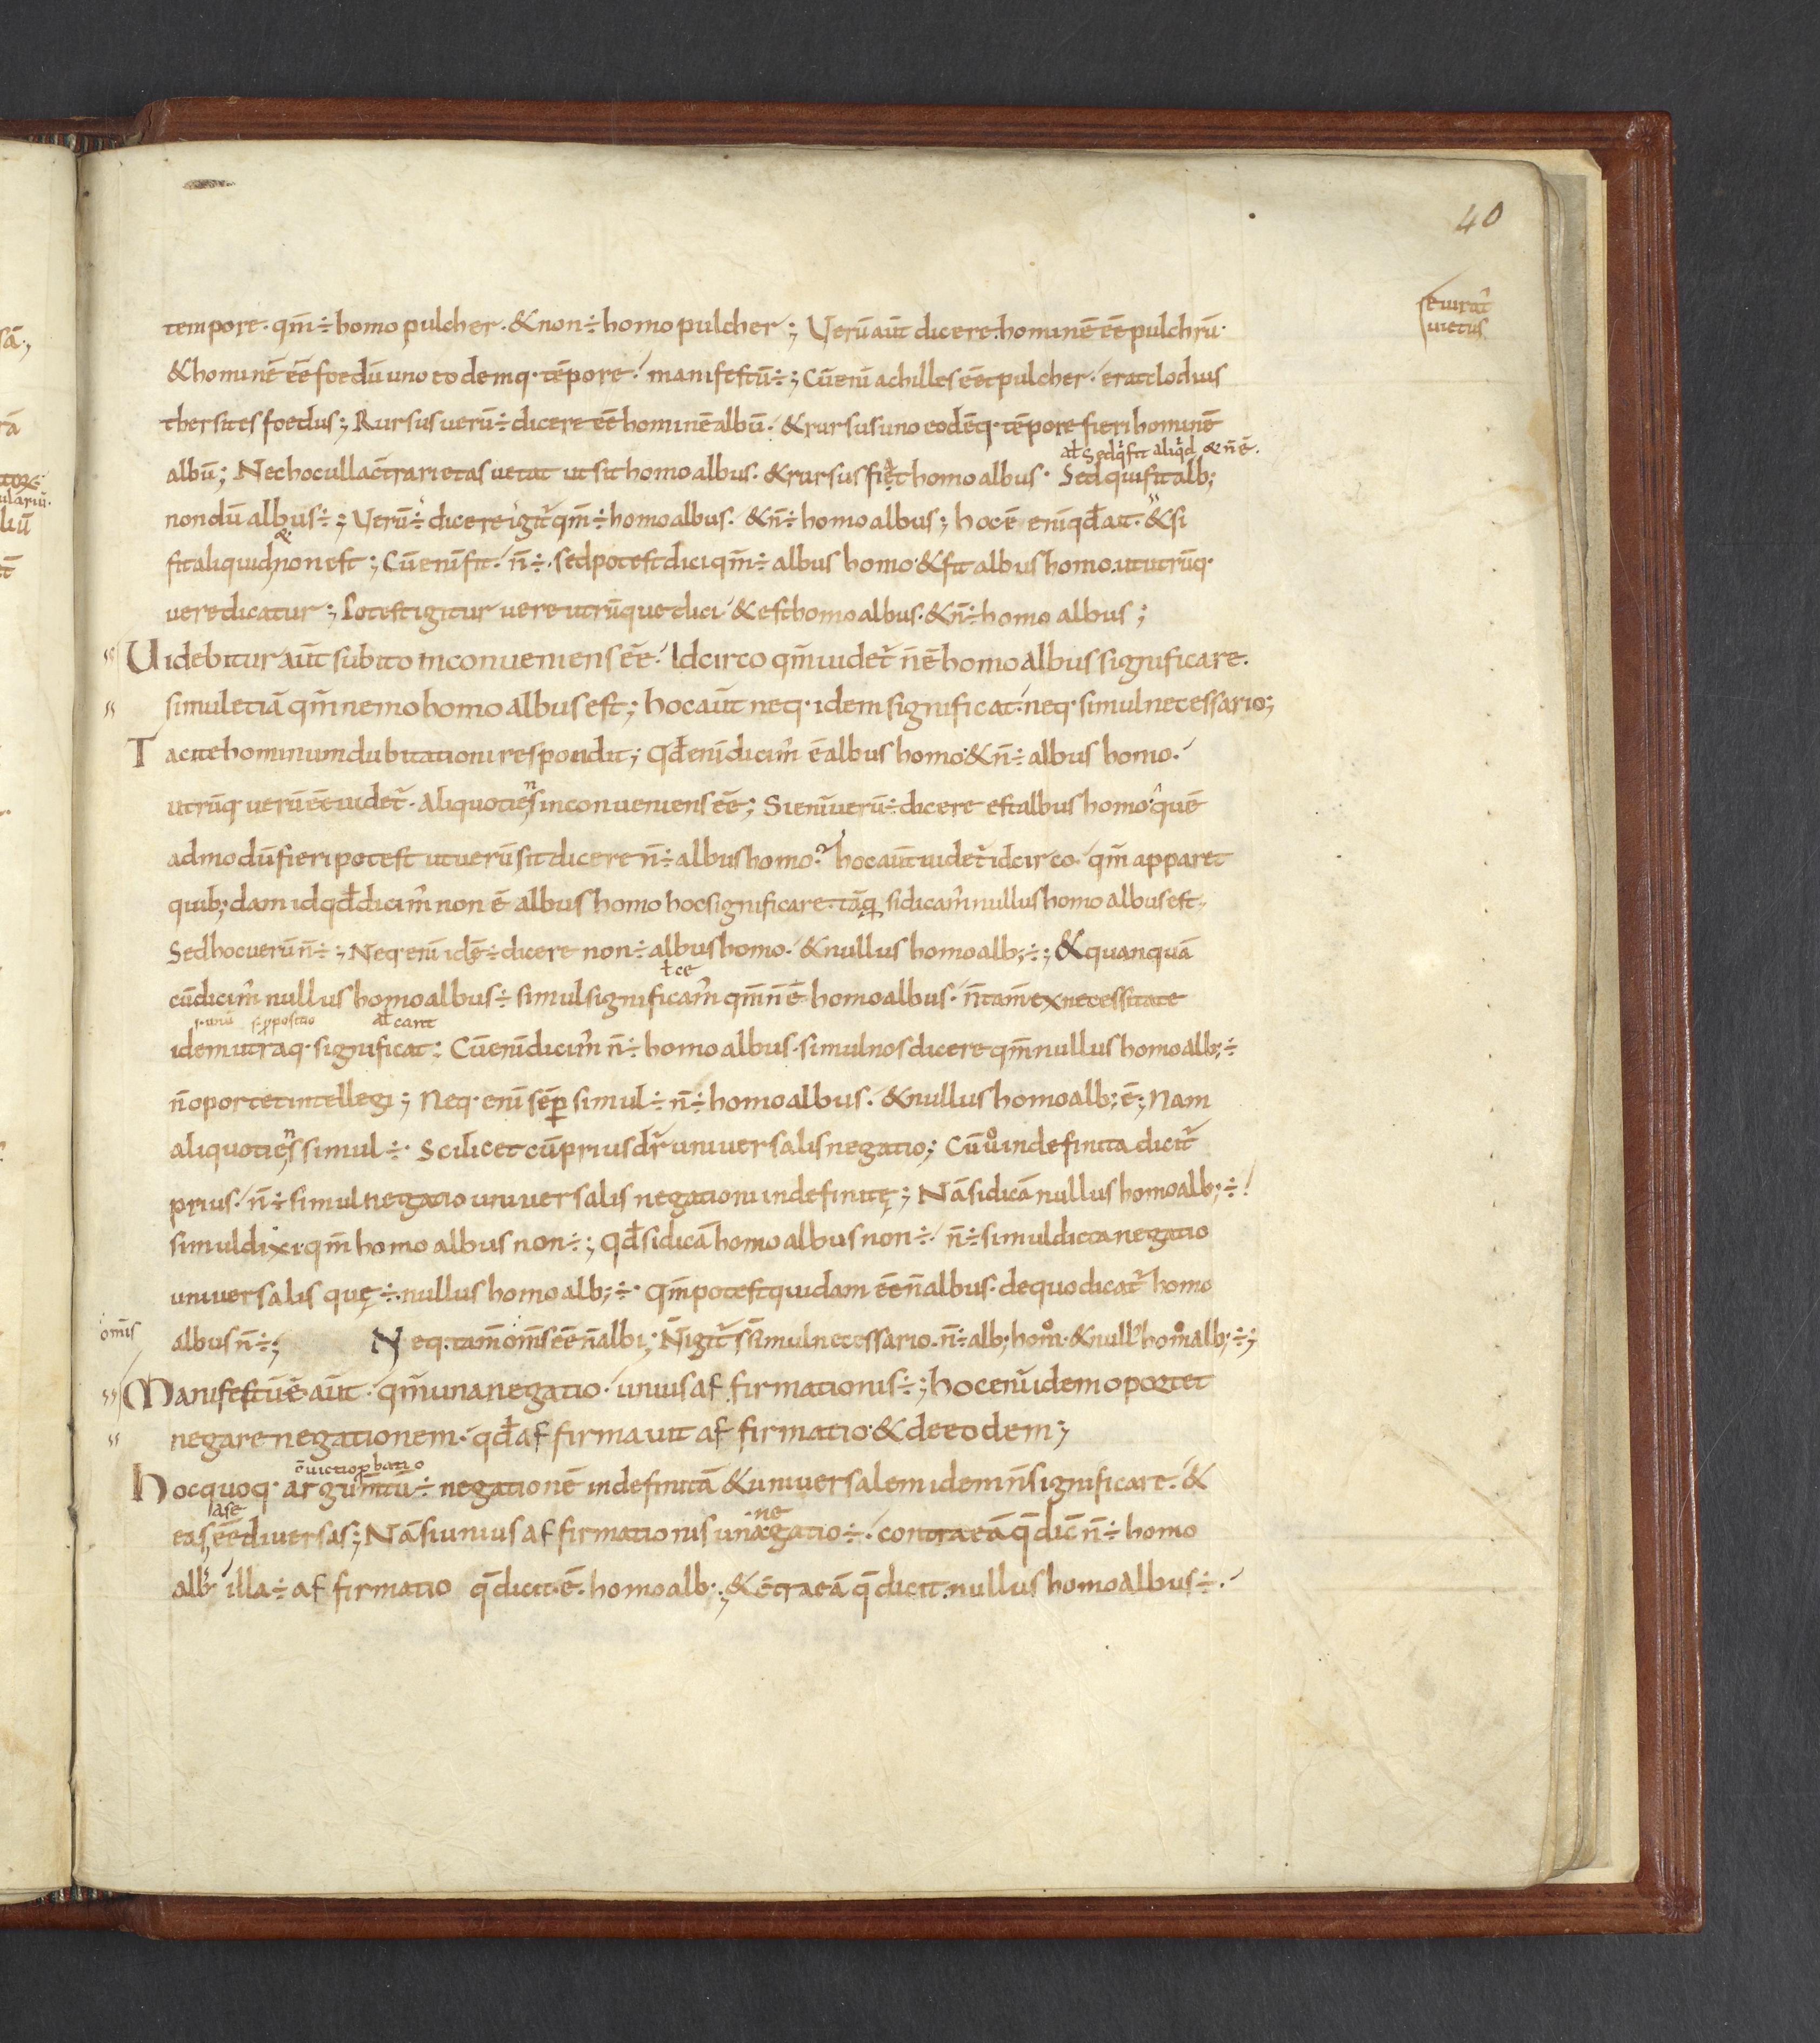 40
seuirat̄
uietus
tempore· qm̄ ÷ homo pulcher· & non ÷ homo pulcher; Verū aūt dicere· hominē ēē pulchrū·
& hominē ēē foedū uno eodemq· tēpore· manifestū ÷; Cū enī achilles eēt pulcher· erat
thersites foedus; Rursus uerū ÷ dicere ēē hominē albū· & rursus uno eodēq· tēpore fieri hominē
at sed q fit aliqd & n̄ ē·
albū; Nec hoc ulla c̄trarietas uetat ut sit homo albus· & rursus fiet homo albus· Sed qui fit alb;
nondū albus ÷; Verū ÷ dicere igit̄ qm̄ ÷ homo albus· & n̄ ÷ homo albus; hoc ē enī qđ ait· & si
fit aliquid & non est; Cū enī fit· n̄ ÷· sed potest dici qm̄ ÷ albus homo· & fit albus homo· ut utrūq·
uere dicatur; Potest igitur uere utrūque dici· & est homo albus· & n̄ ÷ homo albus;
Uidebitur aūt subito inconueniens ēē· Idcirco qm̄ uidet̄ n̄ ē homo albus significare·
simul etiā qm̄ nemo homo albus est; hoc aūt neq· idem significat· neq· simul necessario;
Tacite hominum dubitationi respondit; Qđ enī dicim̄ ē albus homo· & n̄ ÷ albus homo·
utrūq uerū ēē uidet̄· Aliquotiens inconueniens ēē; Si enī uerū ÷ dicere est albus homo· quē
admodū fieri potest ut uerū sit dicere n̄ ÷ albus homo? hoc aūt uidet̄ idcirco· qm̄ apparet
quib; dam id qđ dicim̄ non ē albus homo hoc significare· tāq si dicam̄ nullus homo albus est·
Sed hoc uerū n̄ ÷; Neq enī idē ÷ dicere non ÷ albus homo· & nullus homo alb; ÷; & quanquā
ł ce
cū dicim̄ nullus homo albus ÷ simul significam̄ qm̄ n̄ ē homo albus· n̄ tam̄ ex necessitate
s· unū s· ppositio at cant
idem utraq· significat; Cū enī dicim̄ n̄ ÷ homo albus· simul nos dicere qm̄ nullus homo alb; ÷
n̄ oportet intellegi; Neq· enī sēp simul ÷ n̄ ÷ homo albus· & nullus homo alb; ē; Nam
aliquotiens simul ÷· Scilicet cū prius dr̄ uniuersalis negatio; Cū uo indefinita dicit̄
prius· n̄ ÷ simul negatio uniuersalis negationi indefinitę; Nā si dicā nullus homo alb; ÷
simul dixi qm̄ homo albus non ÷; Qđ si dicā homo albus non ÷· n̄ ÷ simul dicta negatio
uniuersalis quę ÷· nullus homo alb; ÷· Qm̄ potest quidam ēē n̄ albus· de quo dicat̄ homo
omīs
albus n̄ ÷; Neq· tam̄ om̄s ēē n̄ albi; N̄ igit̄ s̄ simul necessario· n̄ ÷ alb; homo· & null' homo alb; ÷;
Manifestū ē aūt· qm̄ una negatio· unius affirmationis ÷; hoc enī idem oportet
negare negationem· qđ affirmauit affirmatio· & de eodem;
c̄uictio pbatio
Hoc quoq· argum̄tū ÷ negationē indefinitā & uniuersalem idem n̄ significare· &
eas ēē diuersas; Nā si unius affirmationis una negatio ÷· contra eā q̄ dic̄ n̄ ÷ homo
alb' illa ÷ affirmatio q̄ dicit ē· homo alb·; & c̄tra eā q̄ dicit· nullus homo albus ÷·